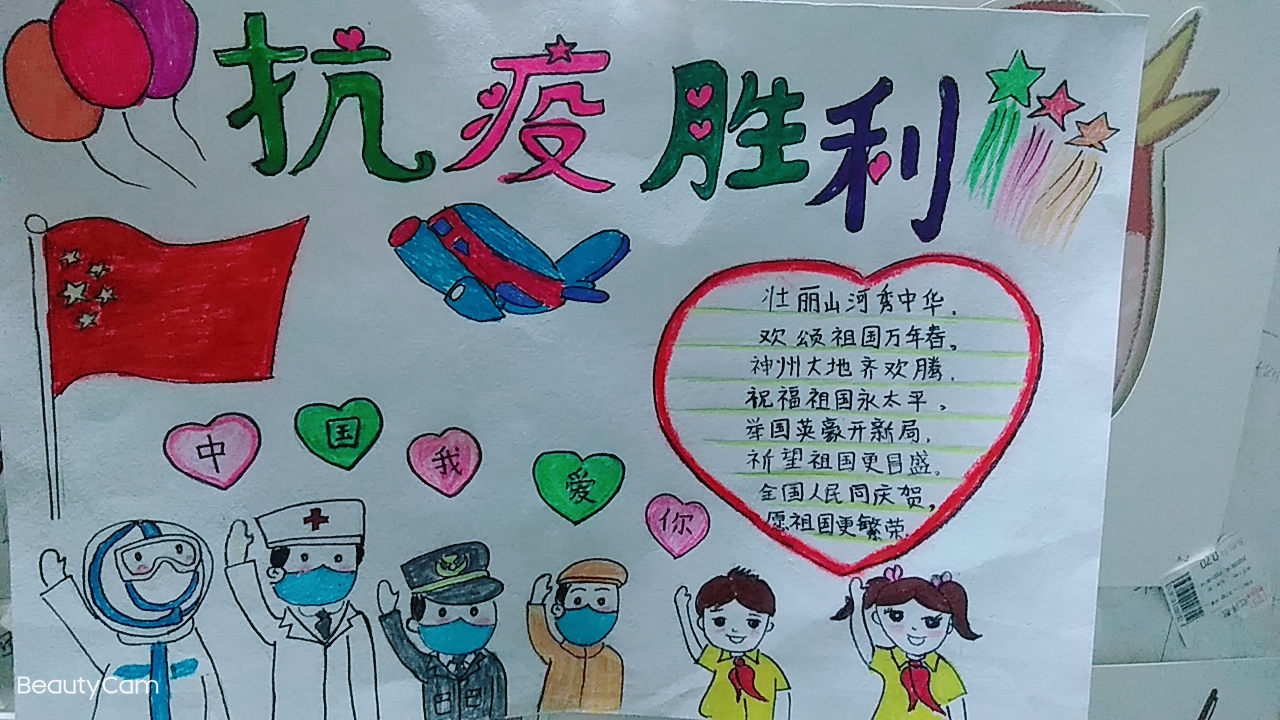 抗疫胜利
壮丽山河秀中华,
欢颂祖国万年春。
神州大地齐欢腾,
祝福祖国永太平。
举国英豪开新局,
祈望祖国更昌盛。
全国人民同庆贺,
愿祖国更繁荣.
中国我爱你
BeautyCam